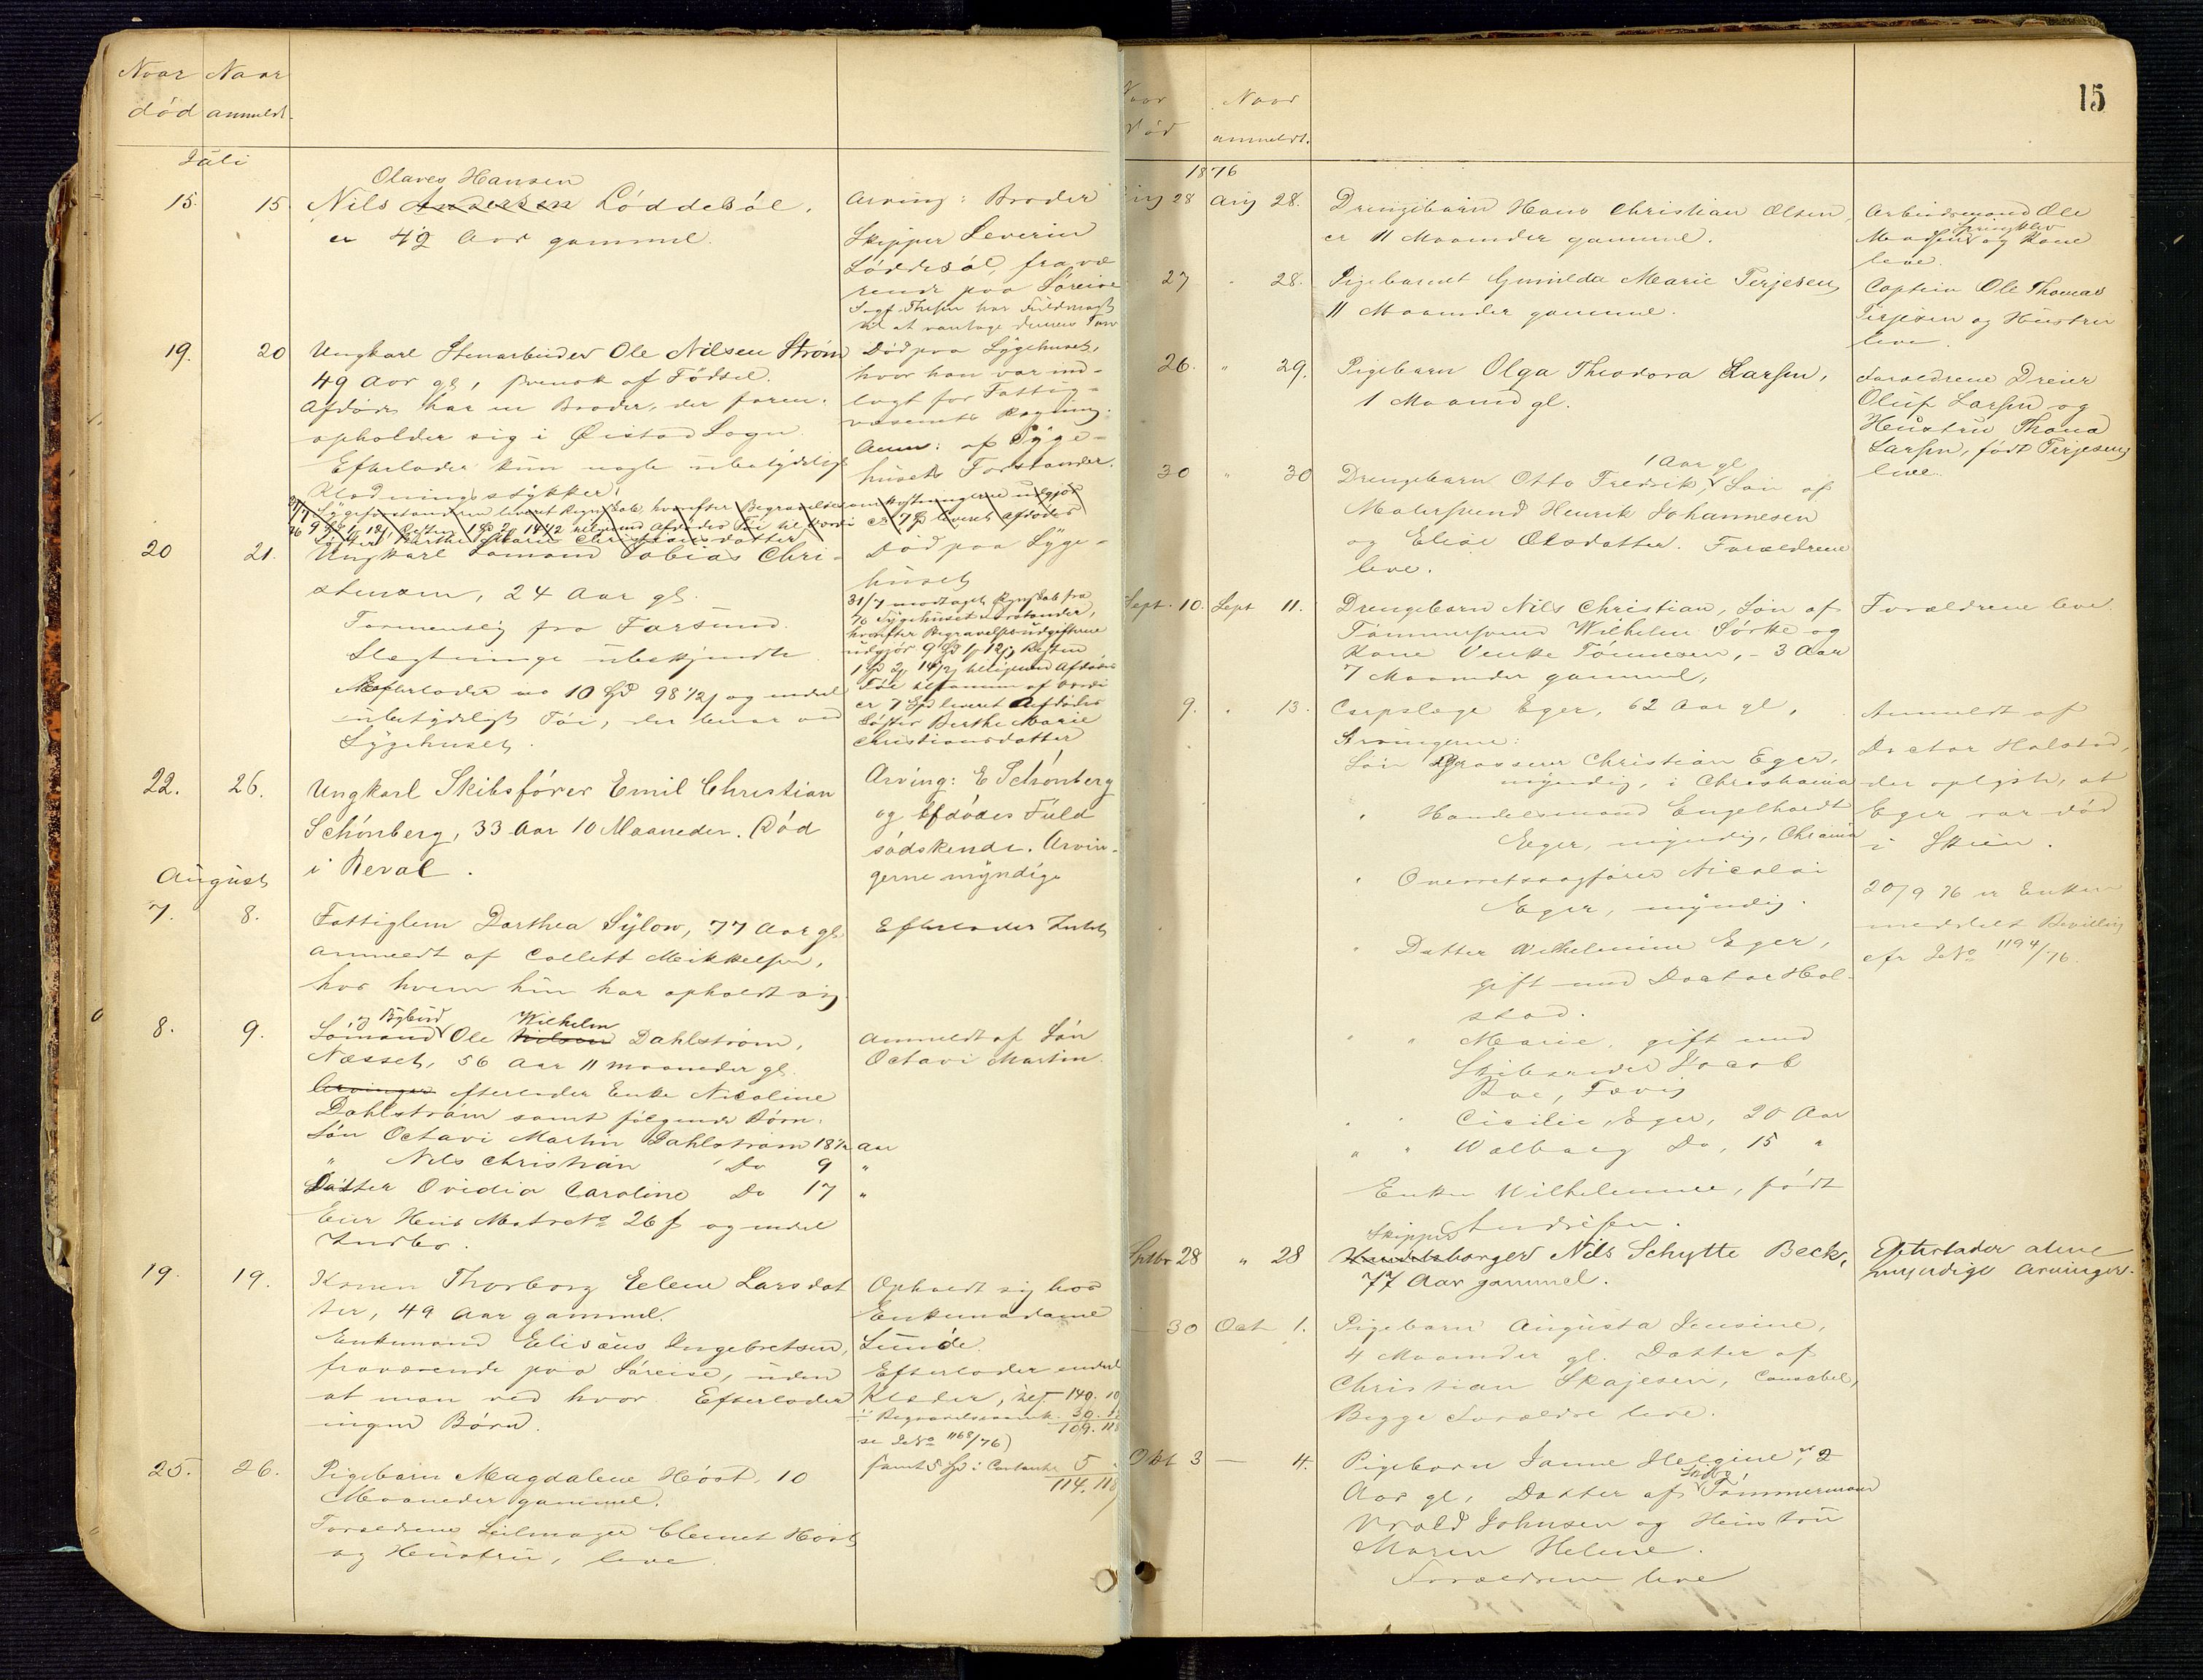 Naar Naar
død anmeldt.
Juli
Olaves Hansen
15. 15. Nils Andersen Løddesøl,
er 42 Aar gammel.
Arving: Broder
Skipper Severin
Løddesøl, fravæ
rende paa Søreise
Sagf. Thesen har Fuldmagt
til at varetage dennes Tarv
19. 20 Ungkarl Stenarbeider Ole Nilsen Strøm
49 Aar gl, svensk af Fødsel.
Afdøde har en Broder, der foren.
opholder sig i Øiestad Sogn
Efterlader kun nogle ubetydelige
Klædningsstykker.
Død paa Sygehuset,
hvor han var ind-
lagt for Fattig-
væsenets Regning.
Anm: af Syge-
husets Forstander.
20 21. Ungkarl Sømand Tobias Chri-
stensen, 24 Aar gl.
Formentlig fra Farsund.
Slægtninge ubekjendte
Efterlader 10 Spd 98 1/2 s og endel
ubetydeligt Tøi, der beror ved
Sygehuset.
Død paa Syge-
huset
31/7 modtaget Regnskab fra
76 Sygehusets Forstander,
hvorefter Begravelsesudgifterne
udgjør 9 Spd 1 12 s Resten
1 Spd 2 14 1/2 s tilligemed Afdødes
Tøi tilsammen af Værdi
er 7 Spd leveret Afdødes
Søster Berthe Marie
Christiansdatter
22. 26. Ungkarl Skibsfører Emil Christian
Schønberg, 33 Aar 10 Maaneder. Død
i Reval.
Arving: E Schønberg
og Afdødes Fuld
sødskende. Arvin-
gerne myndige
August
7. 8. Fattiglem Dorthea Sylow, 77 Aar gl,
anmeldt af Collett Mikkelsen,
hos hvem hun har opholdt sig.
Efterlader Intet
og Bybud Wilhelm
8. 9. Sømand Ole Nilsen Dahlstrøm,
Næsset, 56 Aar 11 maaneder gl.
Arvinger efterlader Enke Nicoline
Dahlstrøm samt følgende Børn:
Søn Octavi Martin Dahlstrøm 18 1/2 Aar
" Nils Christian Do 9 "
Datter Ovidia Caroline Do 17 "
Eier Huus Matr No 26 f og endel
Indbo.
anmeldt af Søn
Octavi Martin.
19. 19. Konen Thorborg Eelene Larsdat
ter, 49 Aar gammel.
Enkemand Elisæus Ingebretsen,
fraværende paa Søreise, uden
at man ved hvor. Efterlader
ingen Børn.
Opholdt sig hos
Enkemadame
Lunde.
Efterlader endel
Klæder, 140. 10
30.
se J No 1168/76) 109. 118
samt 5 Spd i Contante 5
114. 118
25. 26. Pigebarn Magdalene Høst, 10
Maaneder gammel.
Forældrene Seilmager Clemet Høst
og Hustru, leve.
15
Naar Naar
død anmeldt.
1876
Aug 28 Aug 28. Drengebarn Hans Christian Olsen,
er 11 Maaneder gammel.
Arbeidsmand Ole
Madsen Springklev og Kone
leve.
27 " 28. Pigebarnet Gunilda Marie Terjesen,
11 Maaneder gammel.
Captein Ole Thomas
Terjesen og Hustru
leve.
26. " 29. Pigebarn Olga Theodora Larsen,
1 Maaned gl.
Forældrene Dreier
Oluf Larsen og
Hustru Thona
Larsen, født Terjesen,
leve.
1 Aar gl
30 " 30 Drengebarn Otto Fredrik, Søn af
Malersvend Henrik Johannesen
og Elise Olsdatter. Forældrene
leve.
Sept. 10. Sept 11. Drengebarn Nils Christian, Søn af
Tømmersvend Wilhelm Sørke og
Kone Venke Tønnesen, - 3 Aar
7 Maaneder gammel,
Forældrene leve
9. " 13. Corpslæge Eger, 62 Aar gl,
Arvingerne:
Søn Grosserer Christian Eger,
myndig, i Christiania
" Handelsmand Engelhardt
Eger, myndig, Chrania
" Overretssagfører Nicolai
Eger, myndig.
" Datter Wilhelmine Eger,
gift med Doctor Hol-
stad.
" " Marie, gift med
Skibsreder Jacob
Boe, Færvig
" " Cicilie Eger, 20 Aar
" " Walborg Do, 15 "
Enken Wilhelmine, født
Andresen.
Anmeldt af
Doctor Holstad,
der oplyste, at
Eger var død
i Skien.
20/9 76 er Enken
meddelt Bevilling
cfr J No 1194/76.
Skipper
Sptbr 28 " 28 Handelsborger Nils Schytte Beck,
77 Aar gammel.
Efterlader alene
myndige Arvinger.
30 Oct 1. Pigebarn Augusta Jensine,
4 Maaneder gl. Datter af
Christian Skajesen, Constabel,
Begge Forældre leve.
Okt 3 — 4. Pigebarn Janne Helgine, 2
Aar gl, Datter af Skibs Tømmermand
Wrold Johnsen og Hustru
Maren Helene.
Forældrene leve